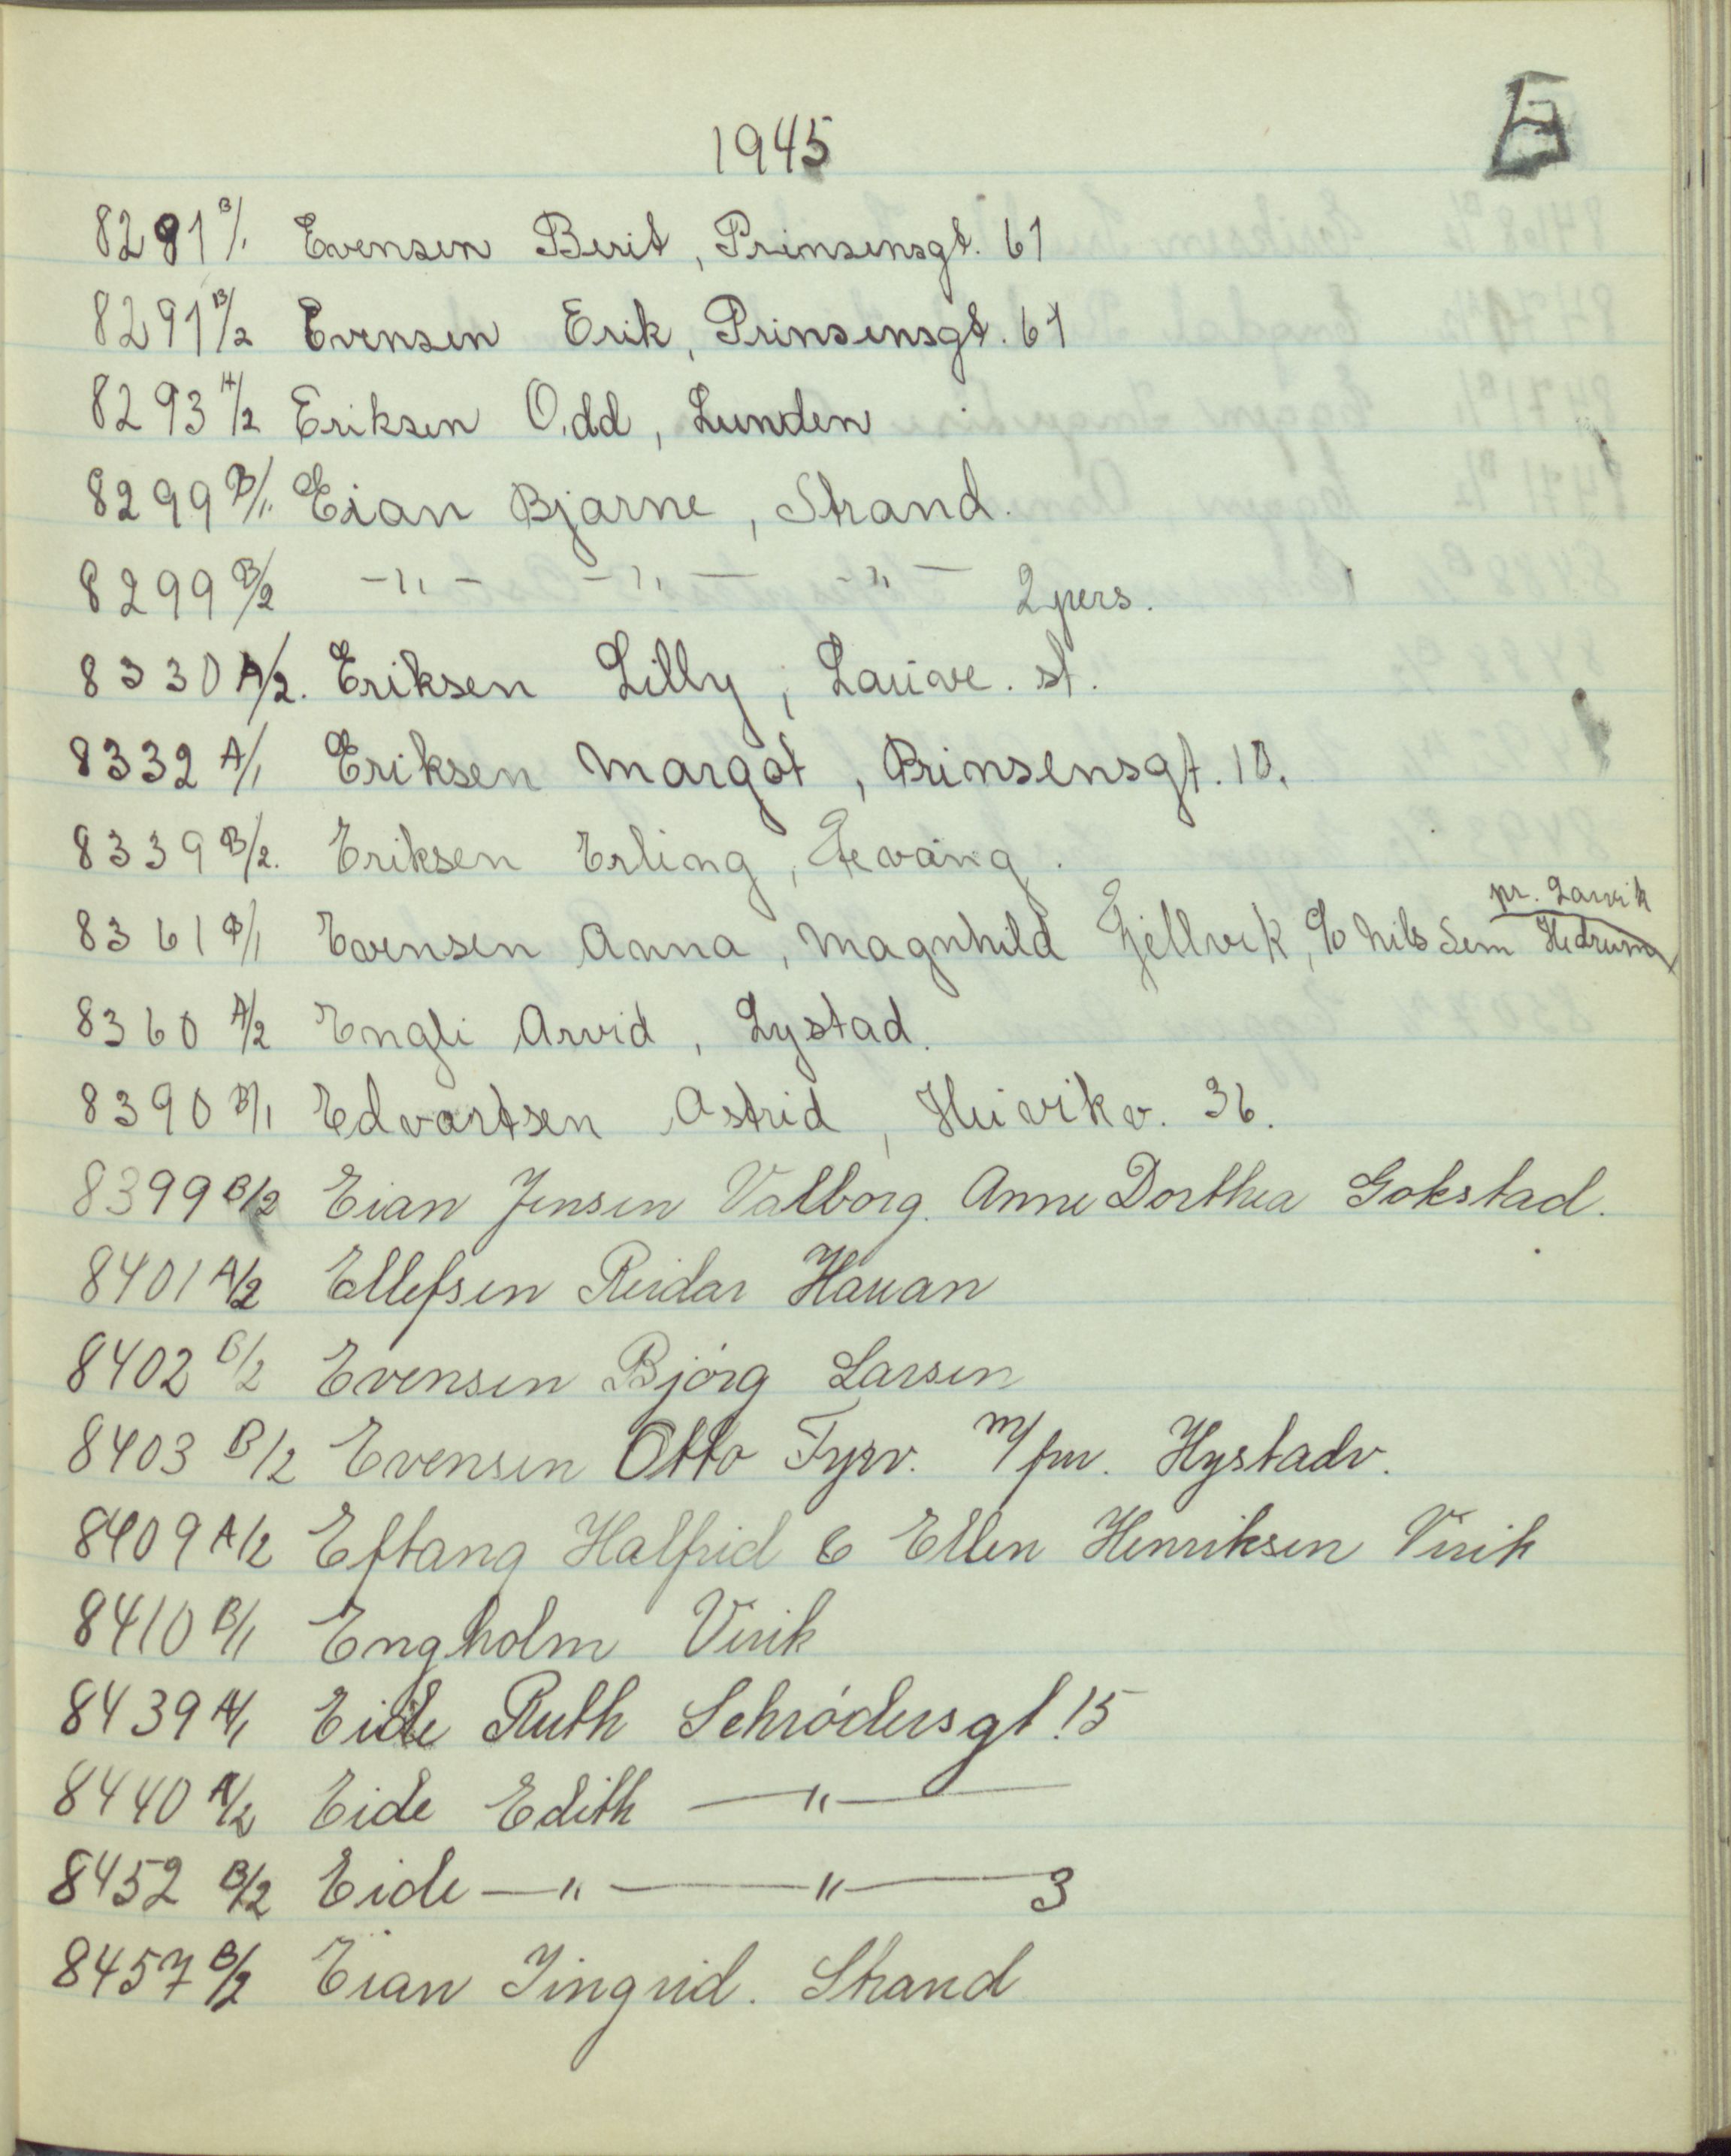 E
1945
8291 B/1 Evensen Berit, Prinsensgt. 61
8291 B/2 Evensen Erik, Prinsensgt. 61
8293 A/2 Eriksen Odd, Lunden
8299 B/1. Eian Bjarne, Strand.
8299 B/2 -"- -"- -"- 2 pers.
8330 A/2. Eriksen Lilly, Lauve. st.
8332 A/1 Eriksen Margot, Prinsensgt. 10.
8339 B/2. Eriksen Erling, Fevang.
pr. Larvik
8361 B/1 Evensen Anna, Magnhild Gjellvik, c/o Nils Sem Hedrum
8360 A/2 Engli Arvid, Lystad.
8390 B/1 Edvartsen Astrid, Heivikv. 36.
8399 B/2 Eian Jensen Valborg. Anne Dorthea Gokstad.
8401 A/2 Ellefsen Reidar Hauan
8402 B/2 Evensen Bjórg Larsen
8403 B/2 Evensen Otto Fyrv. m/fru. Hystadv.
8409 A/2 Eftang Halfrid & Ellen Henriksen Virik
8410 B/1 Engholm Virik
8439 A/1 Eide Ruth Schródersgt. 15
8440 A/2 Eide Edith —"—
8452 B/2 Eide —"— —"— 3
8457 B/2 Eian Jingrid. Strand